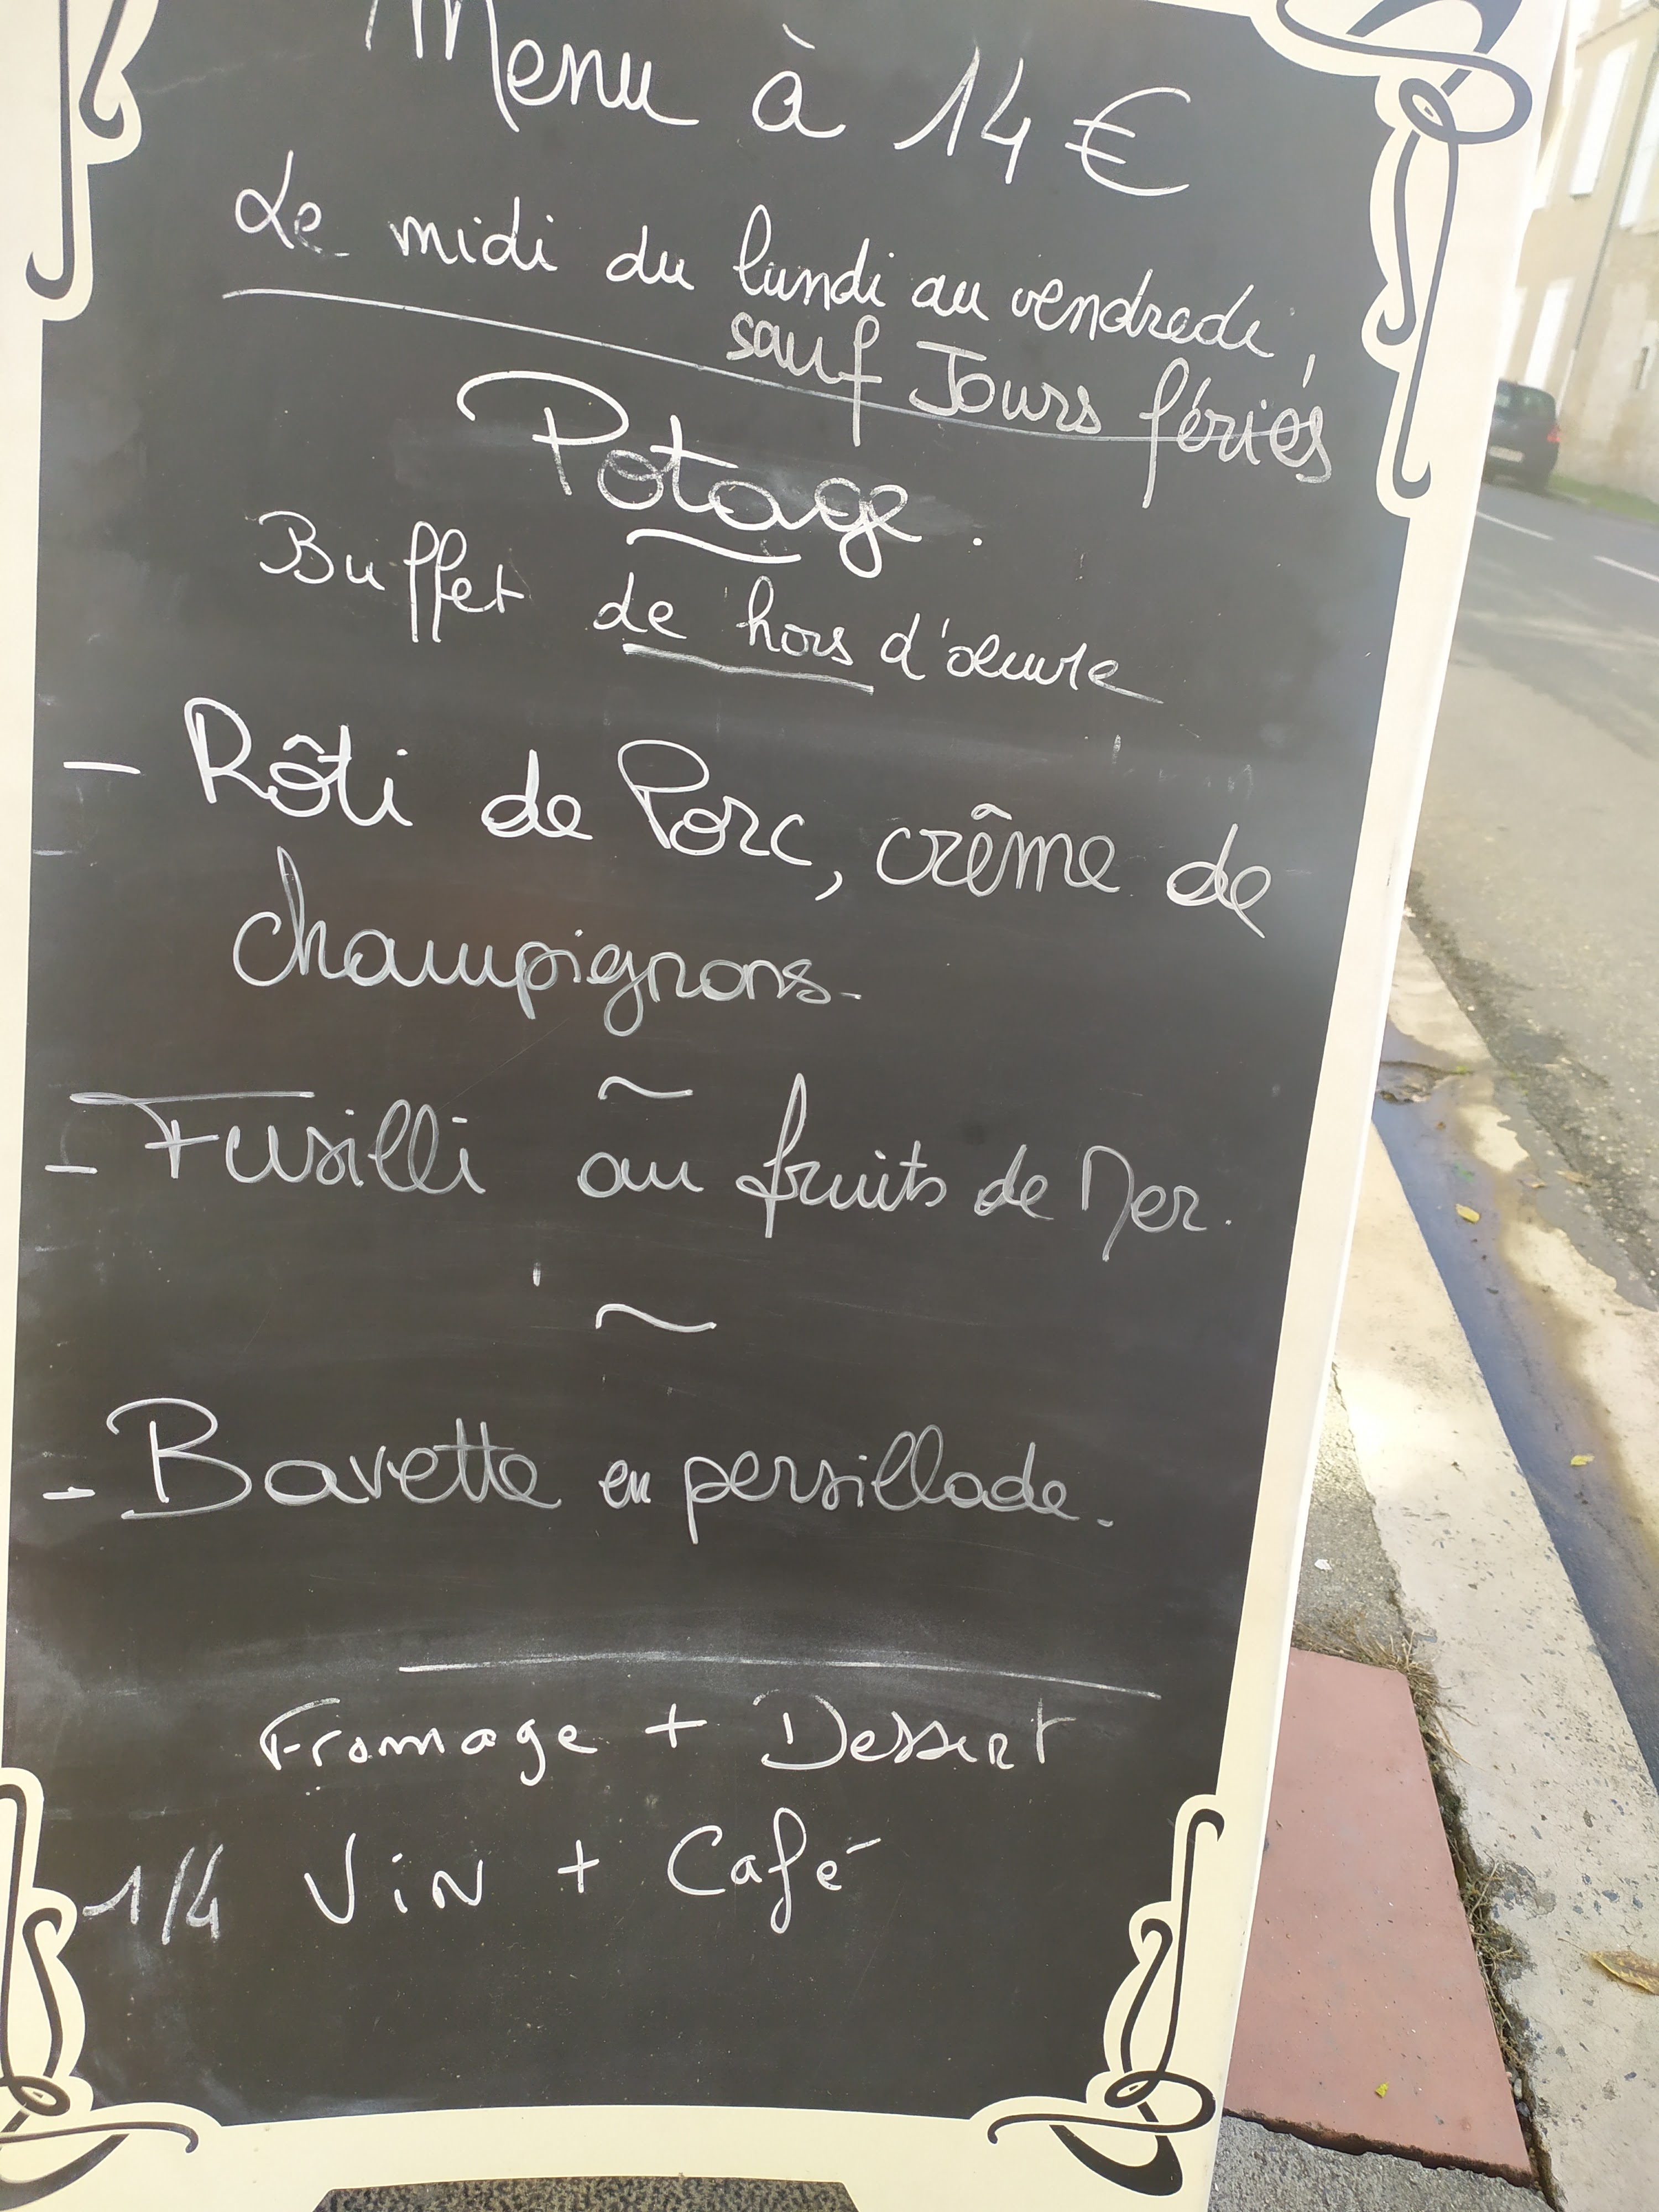 Menu à 14 €
Le midi du lundi au vendredi,
sauf Jours fériés
Potage.
Buffet de hors d'œuvre
- Rôti de Porc, crême de
champignons-
~
- Fusilli au fruits de Mer.
~
- Bavette en persillade.
Fromage + Dessert
1/4 Vin + Café